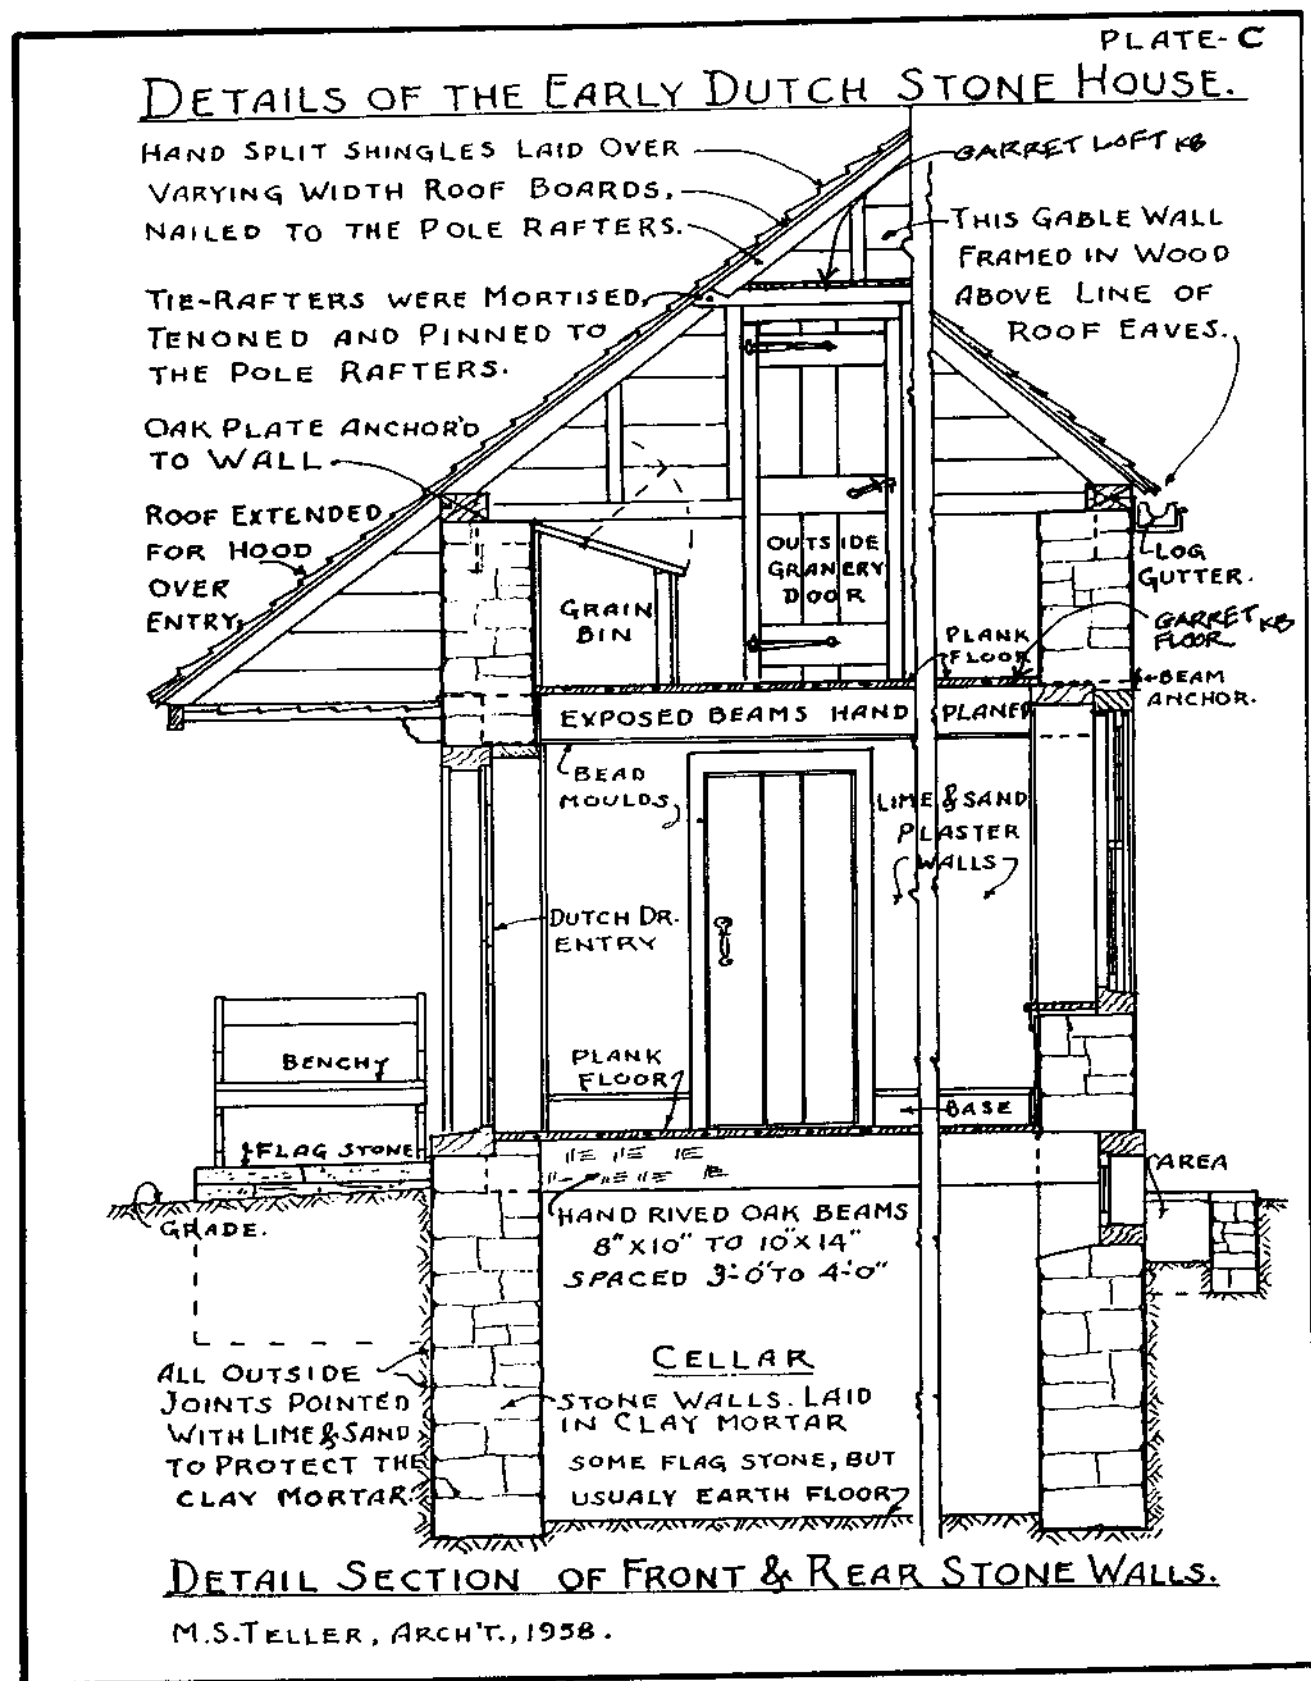 PLATE-C
DETAILS OF THE EARLY DUTCH STONE HOUSE.
HAND SPLIT SHINGLES LAID OVER
VARYING WIDTH ROOF BOARDS,
NAILED TO THE POLE RAFTERS.
GARRET LOFT KB
THIS GABLE WALL
FRAMED IN WOOD
ABOVE LINE OF
ROOF EAVES.
TIE-RAFTERS WERE MORTISED,
TENONED AND PINNED TO
THE POLE RAFTERS.
OAK PLATE ANCHOR'D
TO WALL
ROOF EXTENDED
FOR HOOD
OVER
ENTRY
GRAIN
BIN
OUTSIDE
GRANERY
DOOR
LOG
GUTTER.
PLANK
FLOOR
GARRET KB
FLOOR
BEAM
ANCHOR.
EXPOSED BEAMS HAND PLANED
BEAD
MOULDS
LIME & SAND
PLASTER
WALLS
DUTCH DR.
ENTRY
BENCH
PLANK
FLOOR
BASE
FLAG STONE
GRADE.
AREA
HAND RIVED OAK BEAMS
8"X10" TO 10"X14"
SPACED 3'-0" TO 4'-0"
CELLAR
ALL OUTSIDE
JOINTS POINTED
WITH LIME & SAND
TO PROTECT THE
CLAY MORTAR.
STONE WALLS. LAID
IN CLAY MORTAR
SOME FLAG STONE, BUT
USUALY EARTH FLOOR
DETAIL SECTION OF FRONT & REAR STONE WALLS.
M.S. TELLER, ARCH'T., 1958.